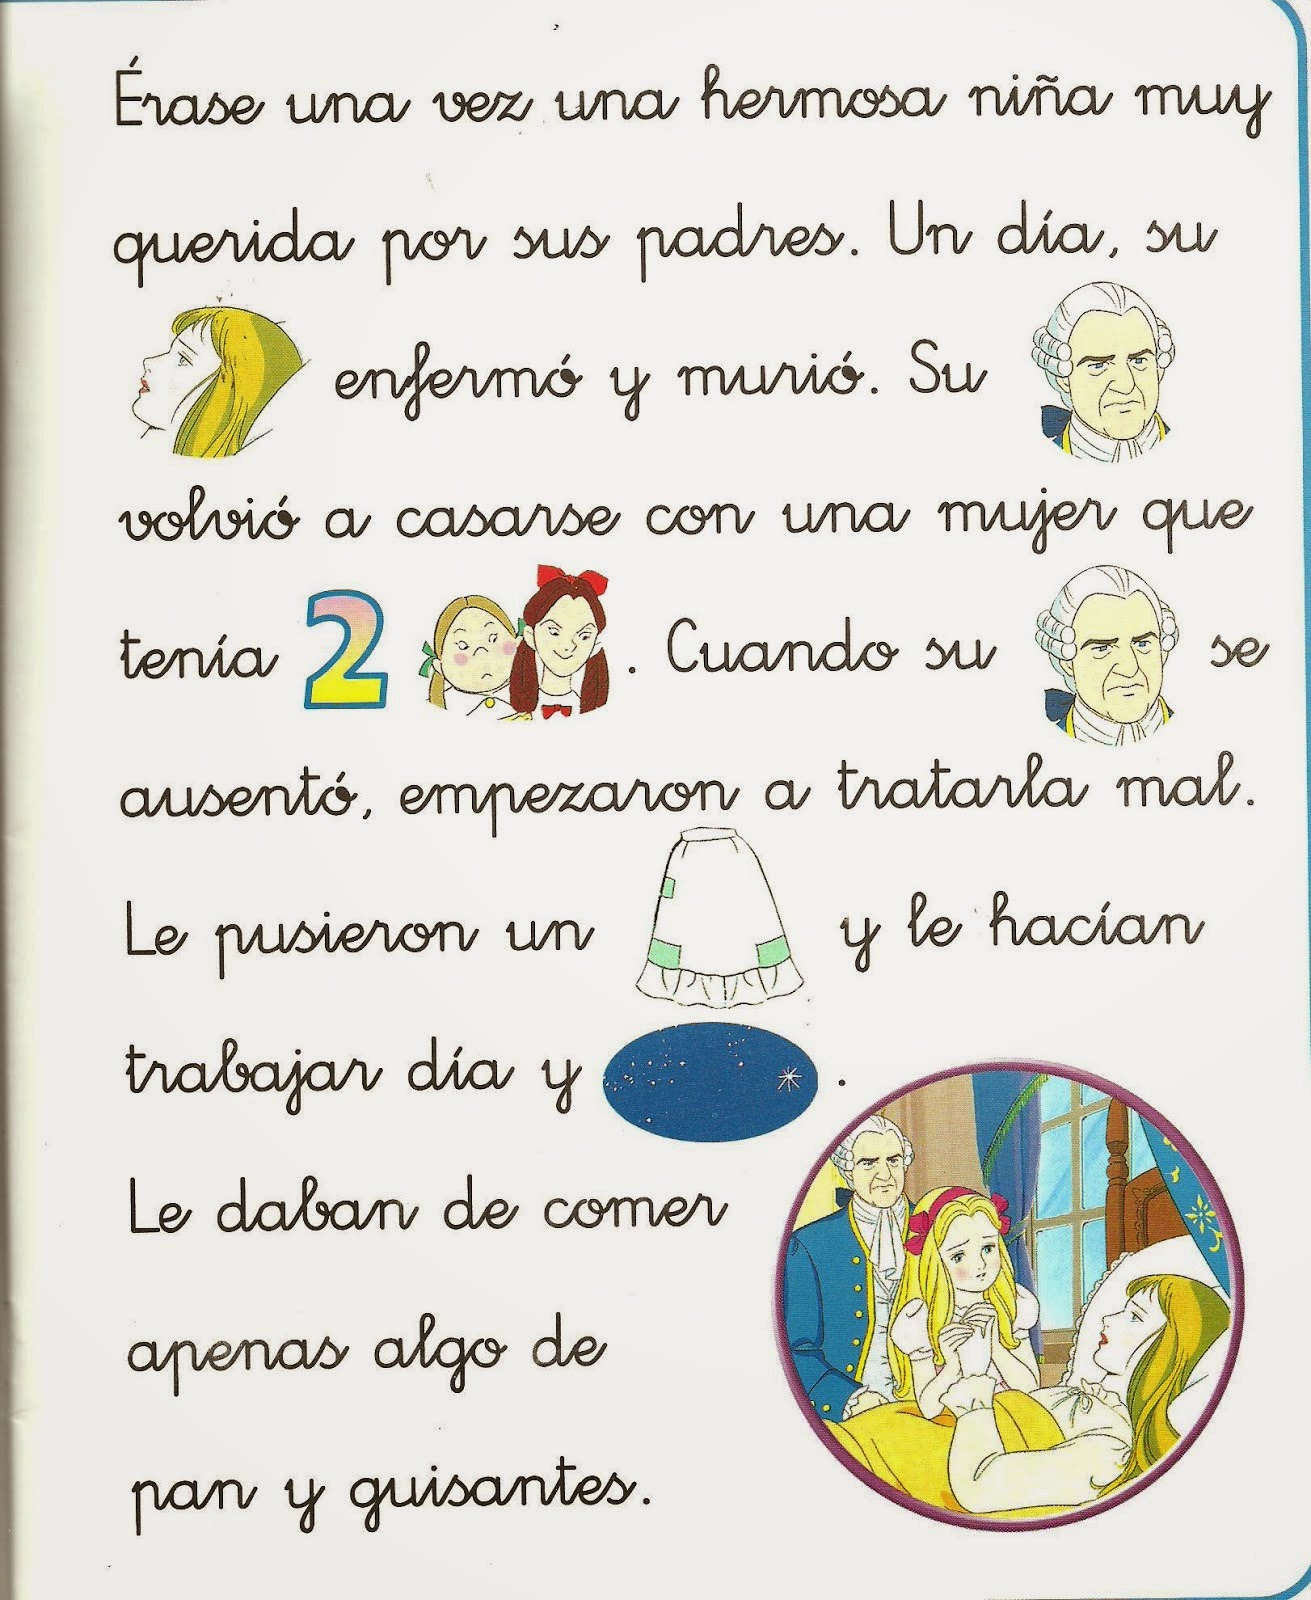 Érase una vez una hermosa niña muy
querida por sus padres. Un día, su
enfermó y murió. Su
volvió a casarse con una mujer que
tenía 2 . Cuando su se
ausentó, empezaron a tratarla mal.
Le pusieron un y le hacían
trabajar día y .
Le daban de comer
apenas algo de
pan y guisantes.